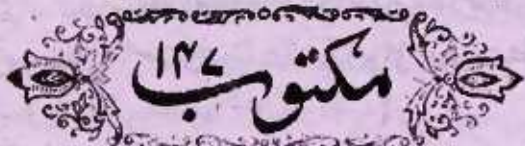 مکتوب ۱۳۷